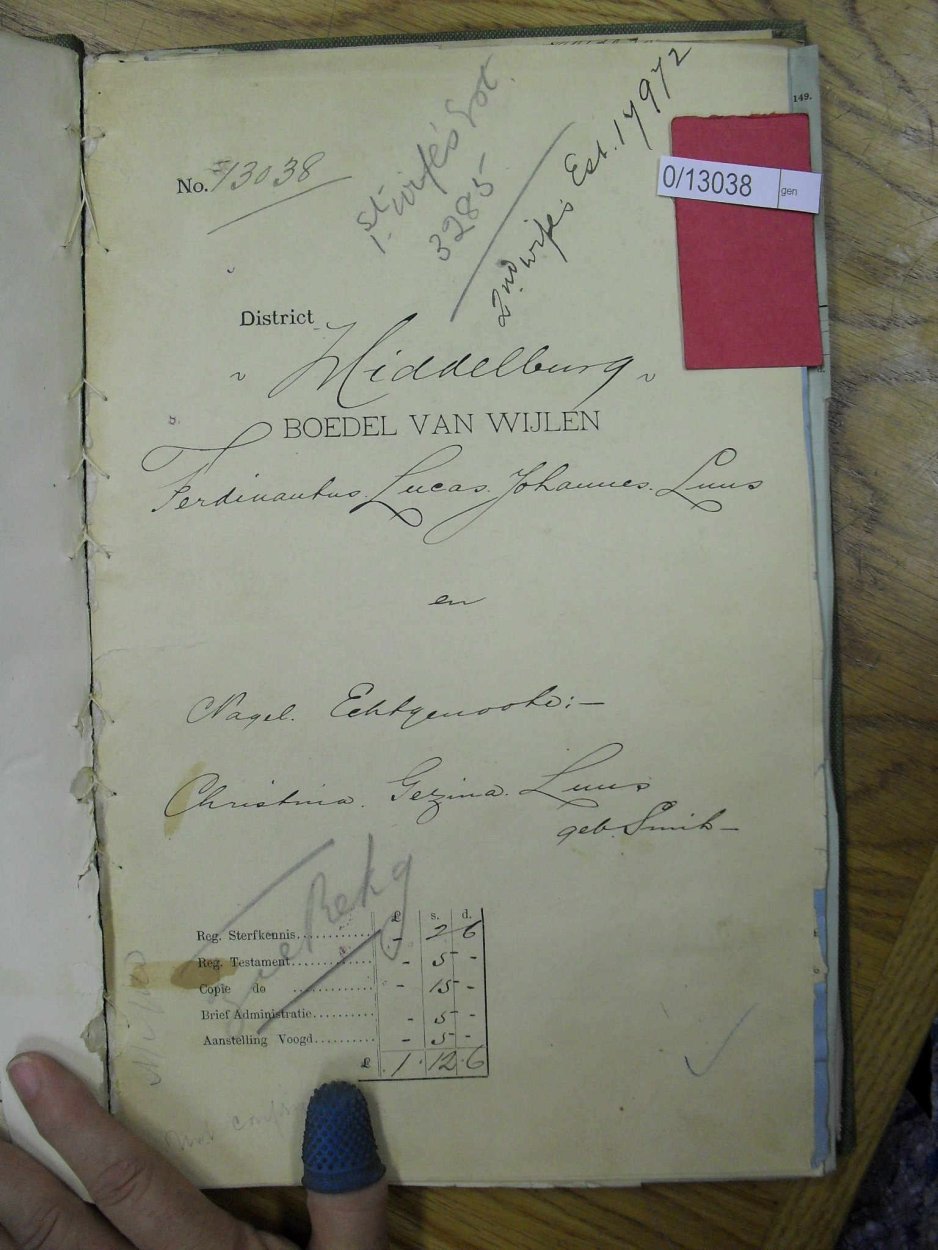 149.
0/13038 gen
No. 13038
1st wife's Est.
3285
2nd wife's Est. 17972
District
" Middelburg "
BOEDEL VAN WIJLEN
Ferdinandus Lucas Johannes Luus
en
Nagel. Echtgenoote:—
Christina Gezina Luus
geb. Smit—
£ s. d.
Reg. Sterfkennis............ - 2 6
Reg. Testament............ - 5 -
Copie do ............ - 15 -
Brief Administratie.......... - 5 -
Aanstelling Voogd.......... - 5 -
£ 1 . 12 . 6
Rekg